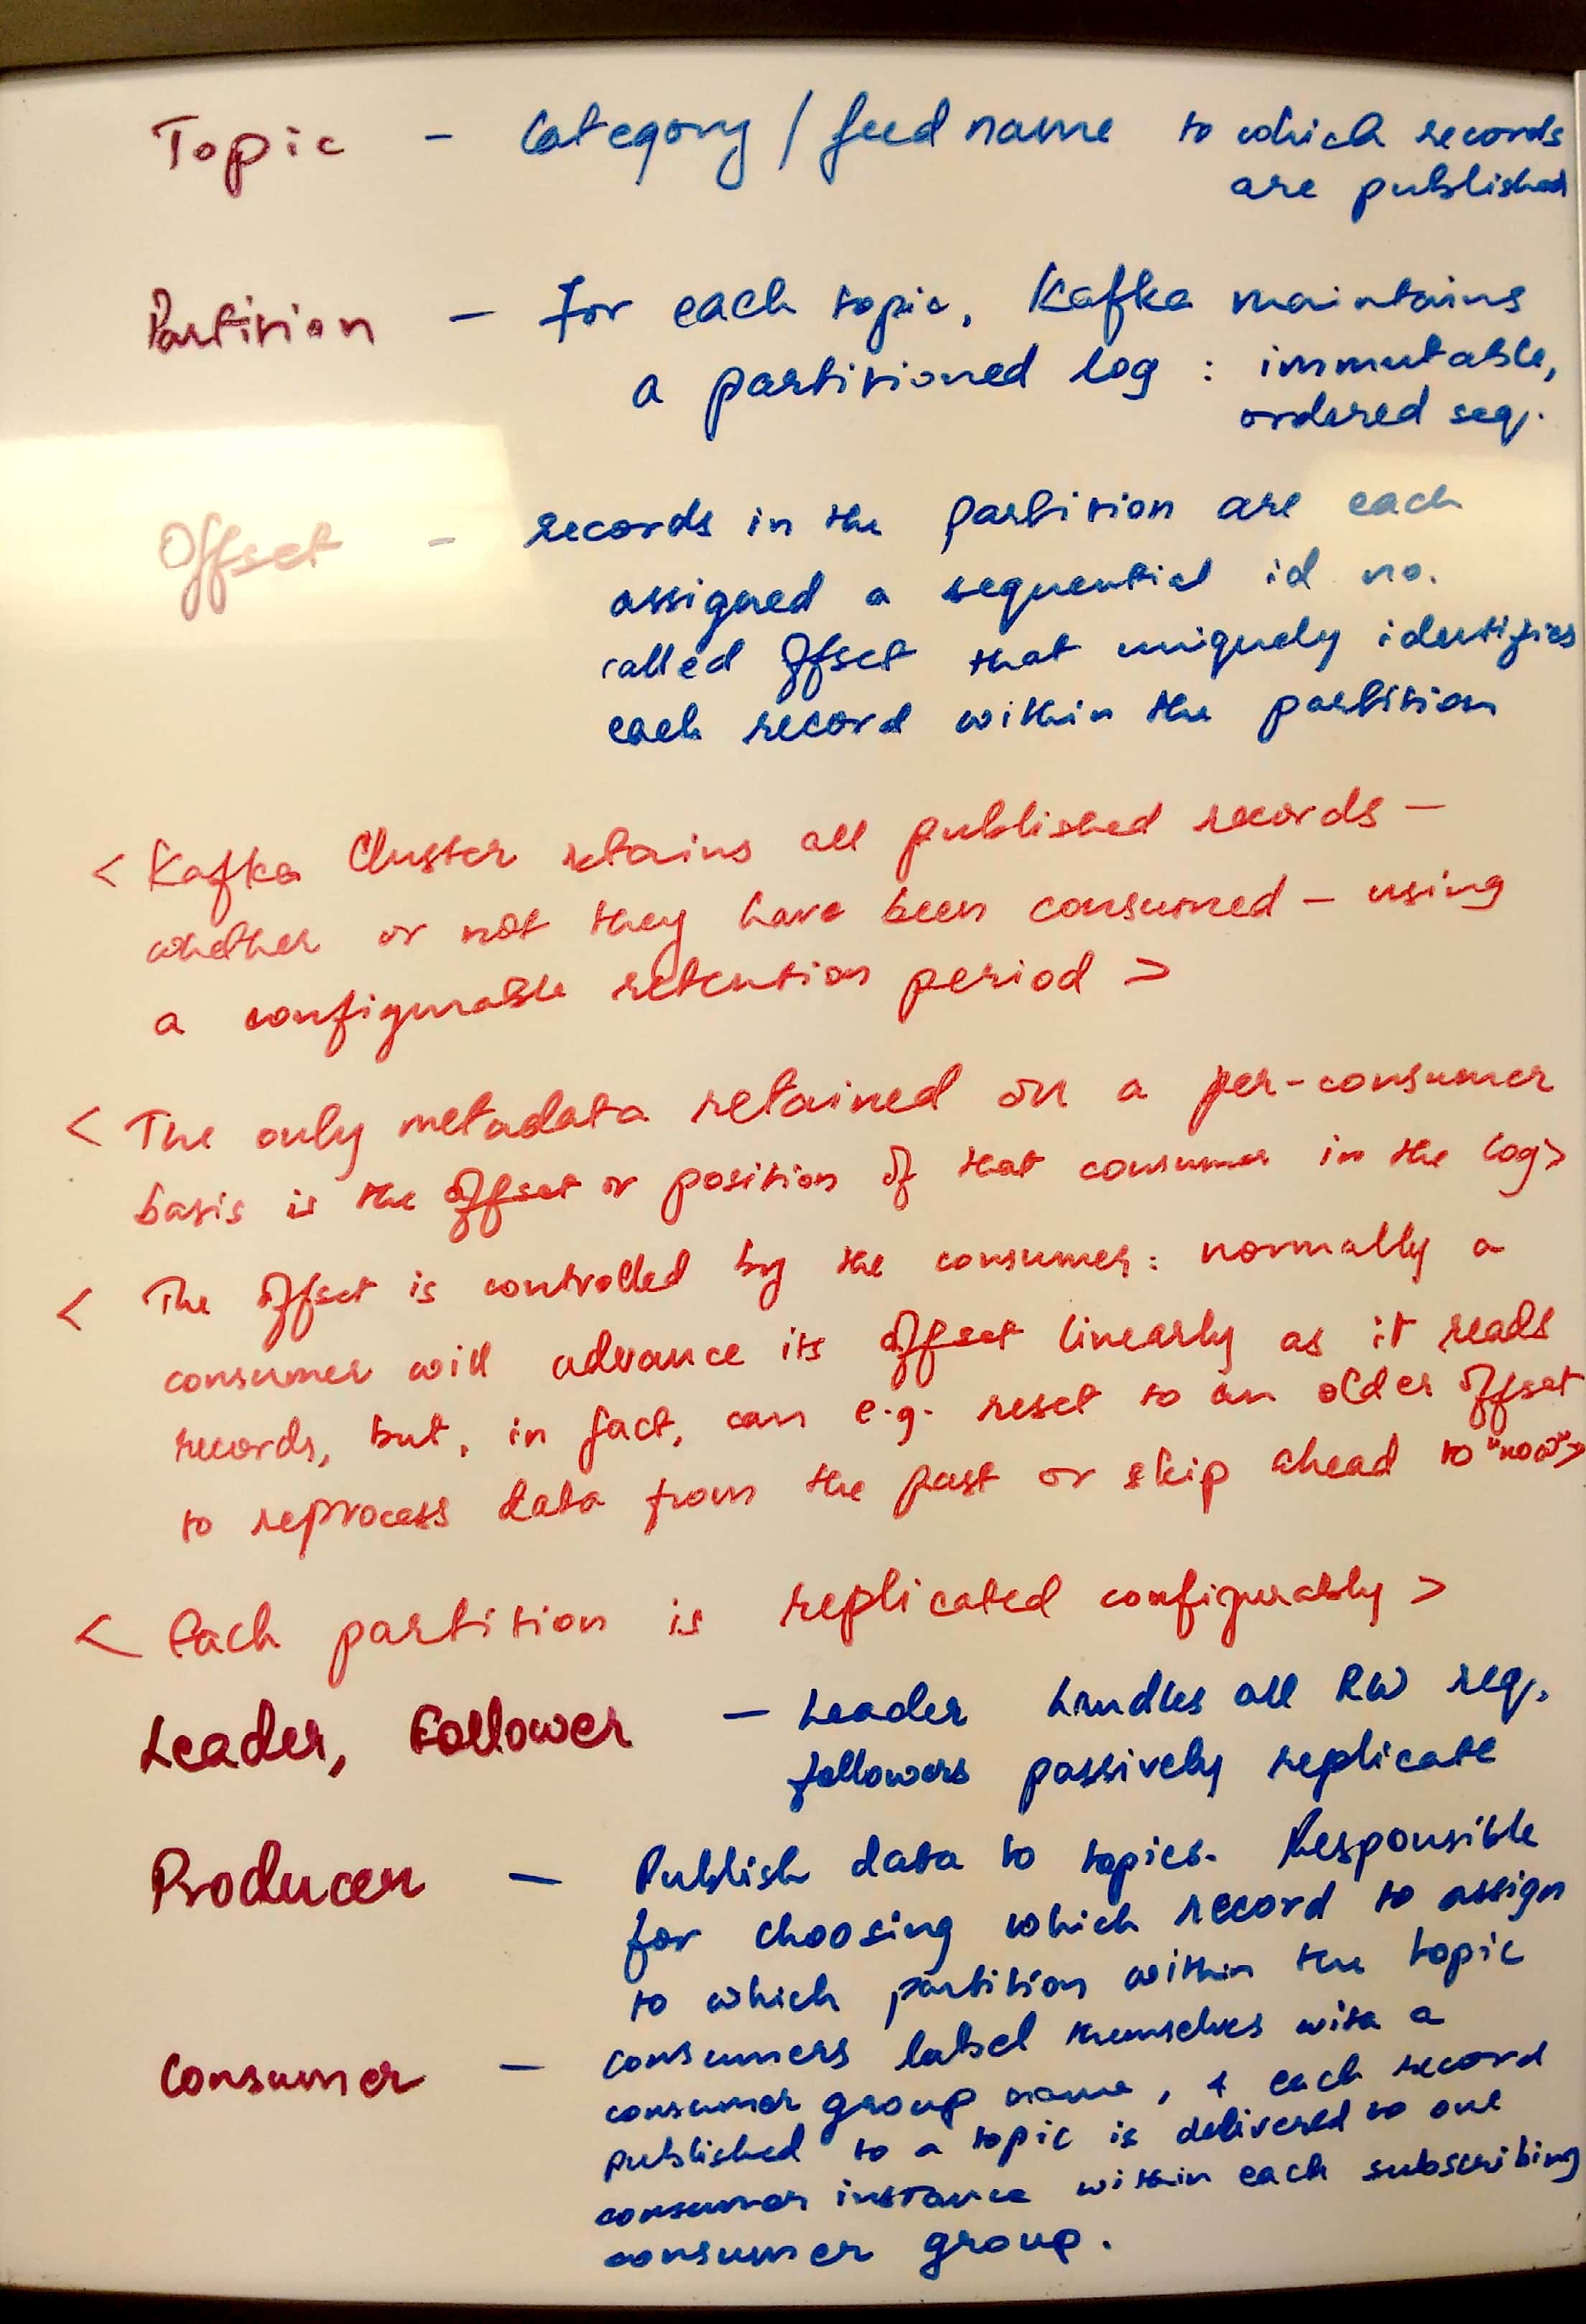 Topic - Category / feed name to which records
are published
Partition - For each topic, Kafka maintains
a partitioned log : immutable,
ordered seq.
Offset - records in the partition are each
assigned a sequential id no.
called offset that uniquely identifies
each record within the partition
< Kafka Cluster retains all published records —
whether or not they have been consumed — using
a configurable retention period >
< The only metadata retained on a per-consumer
basis is the offset or position of that consumer in the log>
< The offset is controlled by the consumer: normally a
consumer will advance its offset linearly as it reads
records, but, in fact, can e.g. reset to an older offset
to reprocess data from the past or skip ahead to "now">
< Each partition is replicated configurably >
Leader, Follower — Leader handles all RW req.
followers passively replicate
Producer — Publish data to topics. Responsible
for choosing which record to assign
to which partition within the topic
Consumer — consumers label themselves with a
consumer group name, & each record
published to a topic is delivered to one
consumer instance within each subscribing
consumer group.